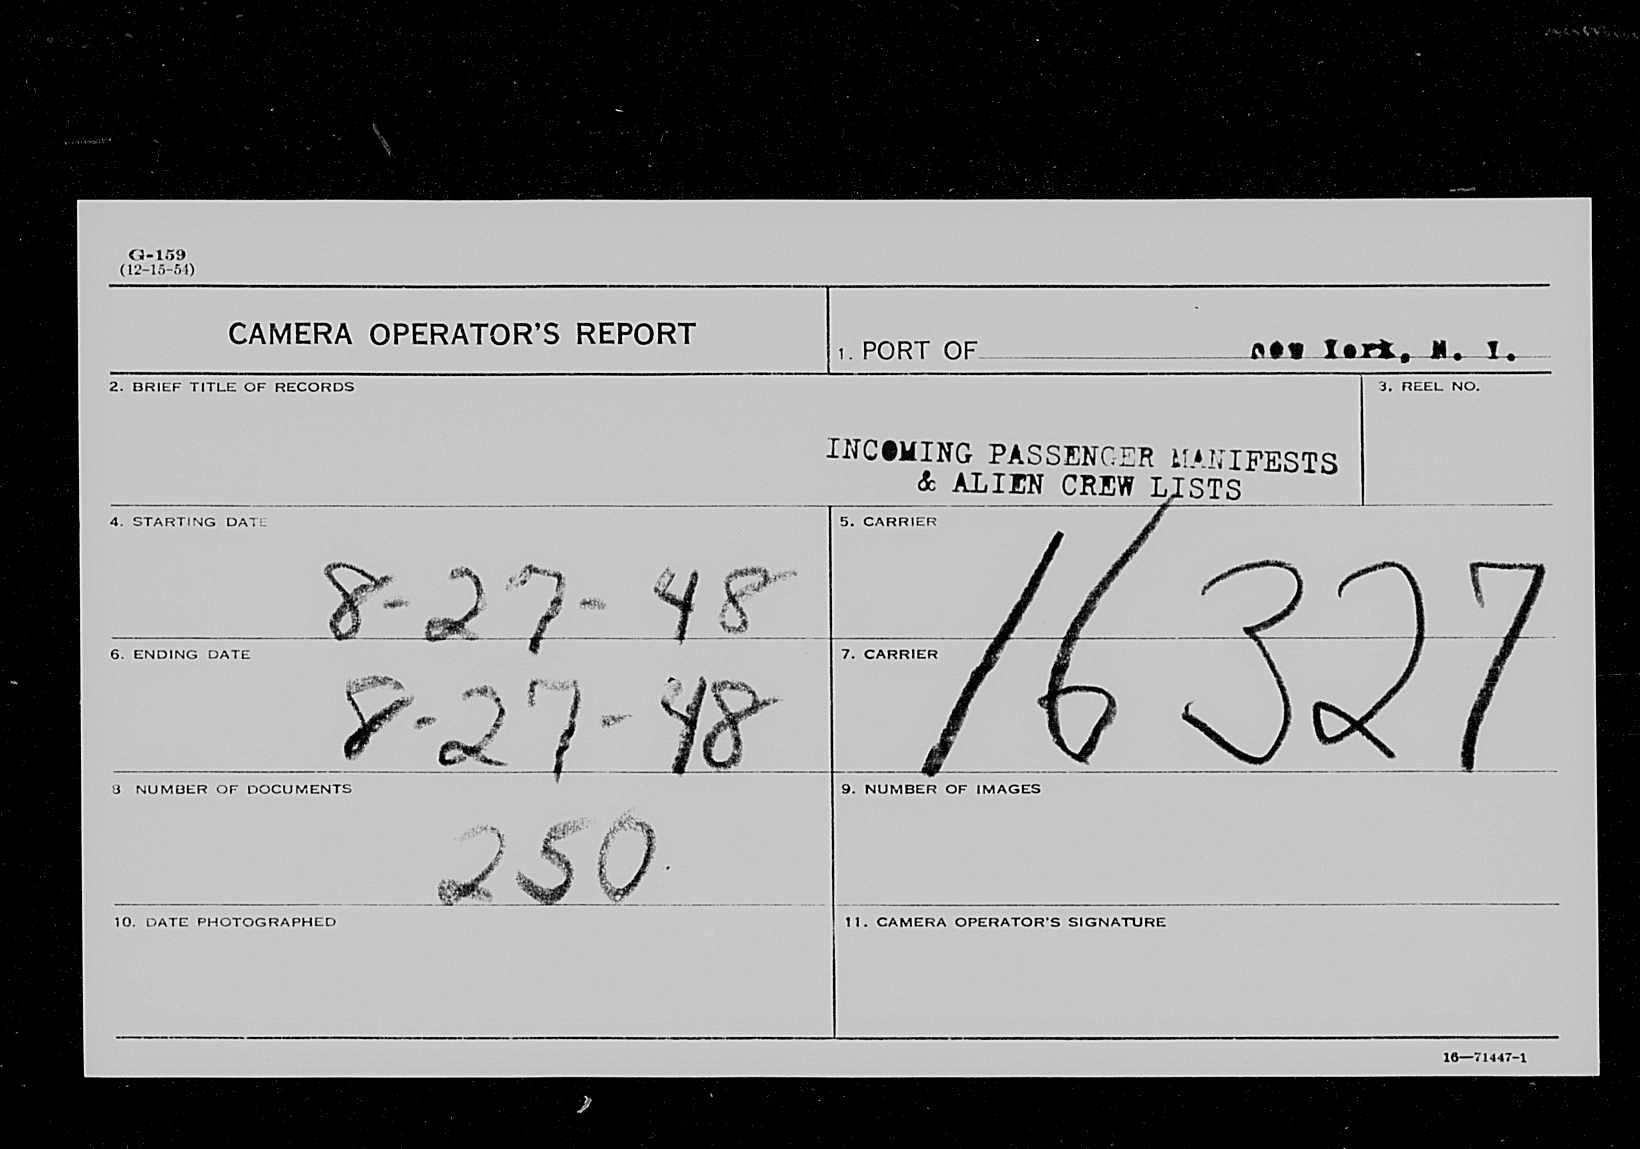 G-159
(12-15-54)
CAMERA OPERATOR'S REPORT
1. PORT OF New York, N. Y.
2. BRIEF TITLE OF RECORDS
3. REEL NO.
INCOMING PASSENGER MANIFESTS
& ALIEN CREW LISTS
4. STARTING DATE
8-27-48
5. CARRIER
16327
6. ENDING DATE
8-27-48
7. CARRIER
8 NUMBER OF DOCUMENTS
250
9. NUMBER OF IMAGES
10. DATE PHOTOGRAPHED
11. CAMERA OPERATOR'S SIGNATURE
16—71447-1